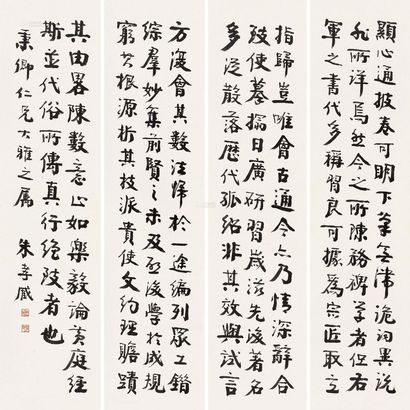 顯心通披卷可明下筆無滯詭詞異說
非所詳焉然今之所陳務裨學者但右
軍之書代多稱習良可據爲宗匠取立
指歸豈唯會古通今亦乃情深調合
致使摹搨日廣研習歲滋先後著名
多從散落歷代孤紹非其效與試言
方復會其數法歸於一途編列眾工錯
綜羣妙舉前賢之未及啟後學於成規
窮其根源析其枝派貴使文約理贍蹟
其由畧陳數意止如樂毅論黃庭經
斯並代俗所傳真行絕致者也
秉卿仁兄大雅之屬 朱孝臧